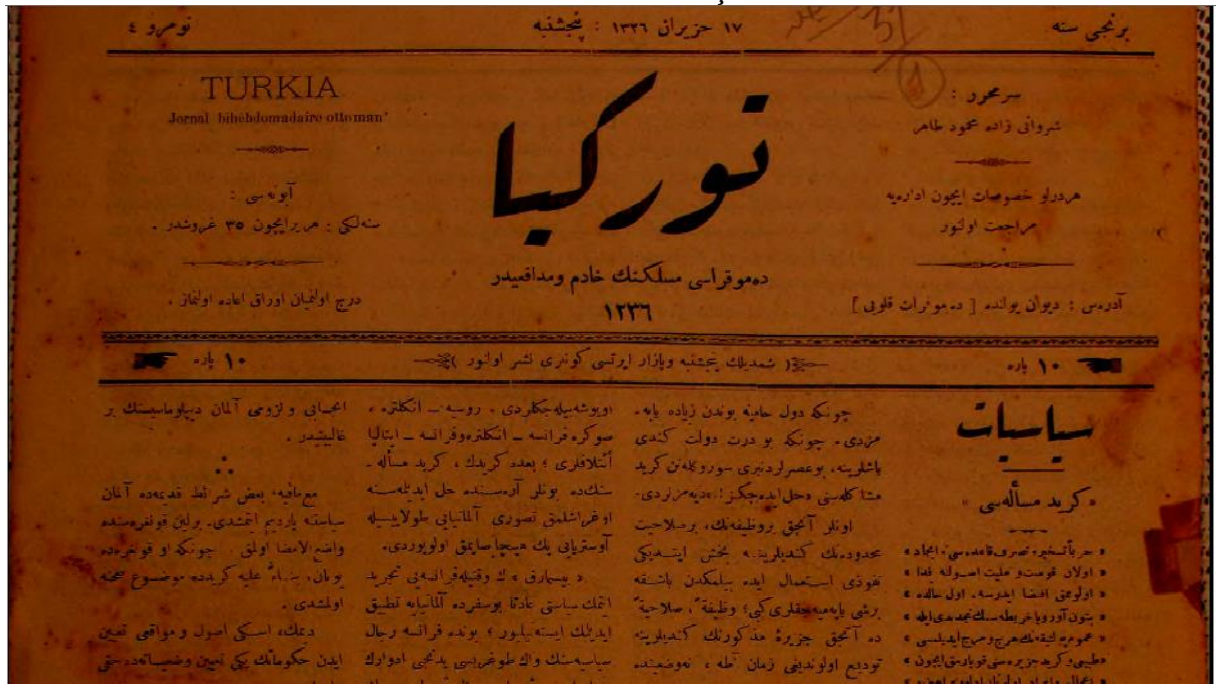 برنجی سنه
١٧ حزیران ١٣٢٦ : پنجشنبه
نومرو ٤
سرمحرر :
شروانی زاده محمود طاهر
هردرلو خصوصات ایچون اداره‌یه
مراجعت اولنور
آدرس : دیوان یولنده [ ده‌موقرات قلوبی ]
تورکیا
ده‌موقراسی مسلكنك خادم ومدافعیدر
١٣٢٦
TURKIA
Jornal bihebdomadaire ottoman
آبونه‌سی :
سنه‌لکی : هر یر ایچون ٣٥ غروشدر .
درج اولنمیان اوراق اعاده اولنماز .
١٠ پاره
( شمدیلك پنجشنبه وپازار ایرتسی کونلری نشر اولنور )
١٠ پاره
سیاسیات
« کرید مسأله‌سی »
« اولان قومیت و ملیت اصولنه فدا »
« اولومتی اقتضا ایدرسه ، اول حالده »
چونکه دول حامیه بوندن زیاده یاپه‌-
مزدی . چونکه بو درت دولت کندی
باشلرینه ، بوعصرلردنبری سوروکله‌نن کرید
مشاکله‌سنی « حل ایده‌جکز ! » دیه‌مزلردی .
اونلر آنجق بروظیفه‌نك ، برصلاحیت
محدوده‌نك کندیلرینه بخش ایتدیکی
نفوذی استعمال ایده بیلمکدن باشقه
برشی یاپه‌میه‌جقلری کبی ؛ وظیفةً ، صلاحیةً
ده آنجق جزیرهٔ مذکوره‌نك کندیلرینه
تودیع اولوندیغی زمان
اویوشه‌بیله‌جکلردی . روسیه ــ انکلتره ،
صوکره فرانسه ــ انکلتره وفرانسه ــ ایتالیا
ائتلافلری ؛ بعده کریدك ، کرید مسأله‌-
سنك‌ده بونلر آره‌سنده حل ایدلمه‌سنه
اوغراشلمق تصوری آلمانیایی طولاییسیله
آوستریایی پك هیچه صایمق اولویوردی .
« بیسمارق » ك وقتیله فرانسه‌یی تجرید
ایتمك سیاستی عادتا بوسفرده آلمانیایه تطبیق
ایدیلك ایسته‌نیلیور ؛ بونده فرانسه رجال
سیاسیه‌سنك واك طوغریسی یدنجی ادواردك
ایجابی و لزومی آلمان دیپلوماسیسنك بر
غالبیتیدر .
مع‌مافیه ، بعض شرائط قدیمه‌ده آلمان
سیاستنه یاردیم ایتمشدی . برلین قونغره‌سنده
واضع الامضا اولمق . چونکه او قونغره‌ده
یونان ، بناءً علیه کریدده موضوع بحث
اولمشدی .
دیمك ، اسکی اصول و مواقعی تعیین
ایدن حکوماتك یکی تعیین وضعیاته‌ده حتی